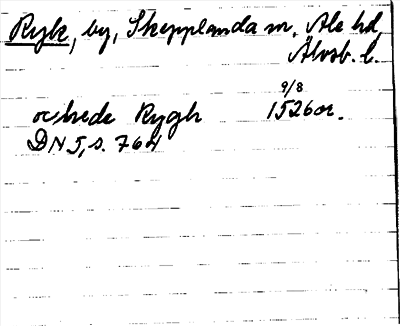 Ryk, by, Skepplanda sn, Ale hd,
Älvsb. l.
9/8
oc hede Rygh 1526 or.
DN 5, s. 764